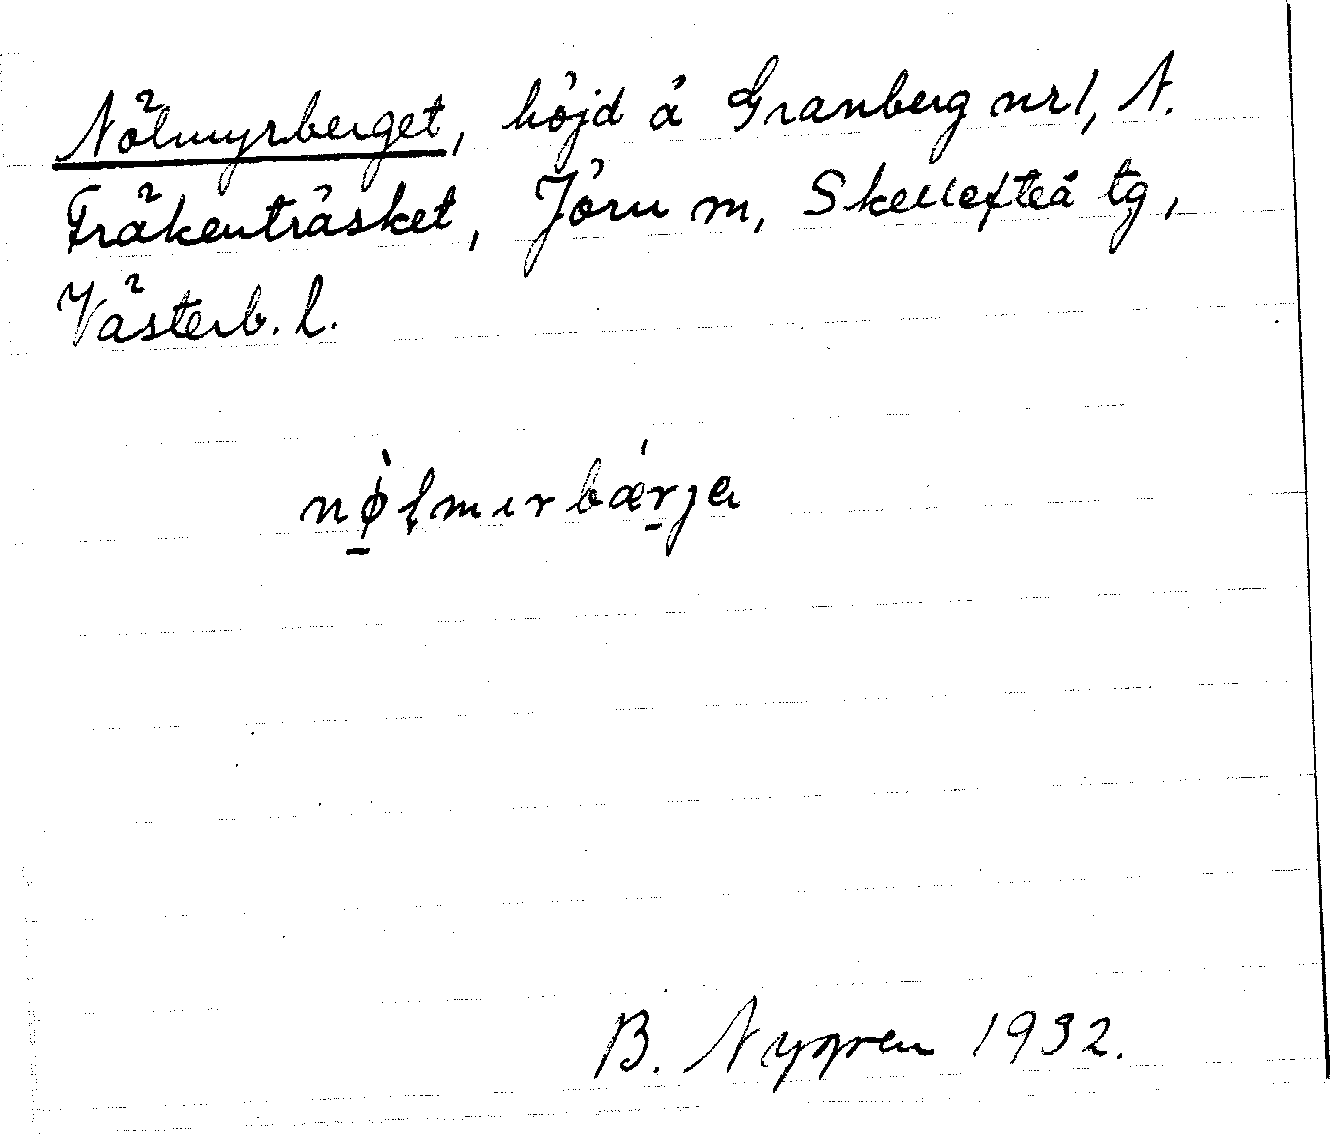 Nölmyrberget, höjd å Granberg nr 1, N.
Fräkenträsket, Jörn m, Skellefteå tg,
Västerb. l.
nø̠̀ɭmırbǽr̠ȷa
B. Nygren 1932.